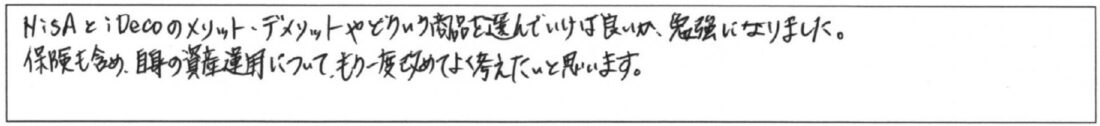 NISAとiDecoのメリット・デメリットやどういう商品を選んでいけば良いか、勉強になりました。
保険も含め、自身の資産運用について、もう一度改めてよく考えたいと思います。